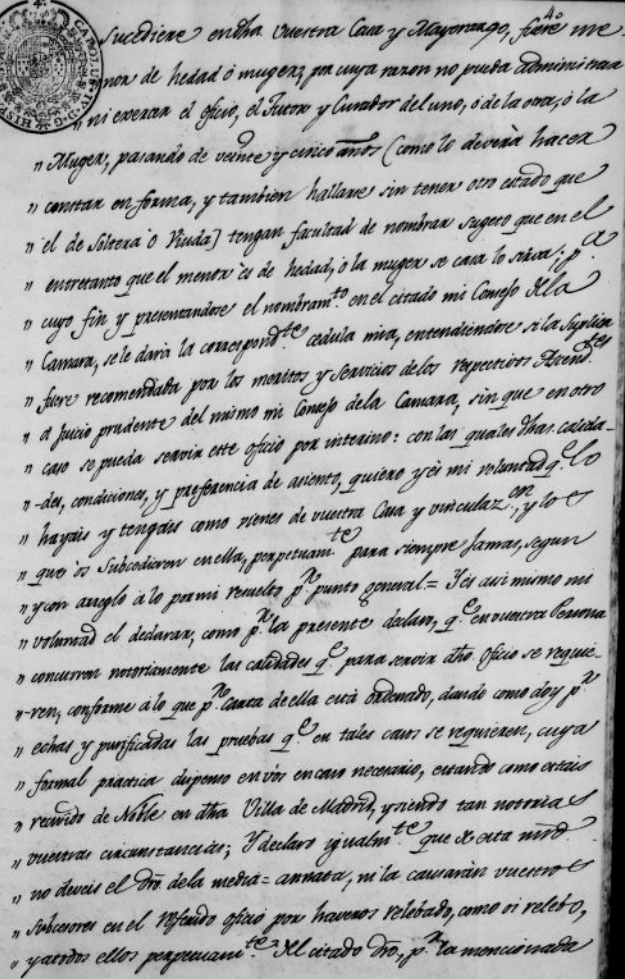 4º
Sucediere en dha Vuestra Casa y Mayorazgo, fuere me-
nor de hedad ó muger, por cuya razon no pueda administrar
" ni exercer el oficio, el Tutor y Curador del uno, ó de la otra, ó la
" Muger, pasando de veinte y cinco años (como lo deverà hacer
" constar en forma, y tambien hallarse sin tener otro estado que
" el de Soltera ò Viuda) tengan facultad de nombrar sugeto que en el
" entretanto que el menor ès de hedad, ò la muger se casa lo sirva; pª
" cuyo fin y presentandose el nombramto en el citado mi Consejo de la
" Camara, se le darà la correspondte cedula mia, entendiendose si la Suplica
" fuere recomendada por los meritos y Servicios de los respectivos Ascendtes
" á juicio prudente del mismo mi Consejo de la Camara, sin que en otro
" caso se pueda servir este oficio por interino: con las quales dhas calida-
" -des, condiciones, y preferencia de asiento, quiero y ès mi voluntad qe lo
" hayais y tengais como vienes de vuestra Casa y vinculazon, y los
" que òs Subcedieren en ella, perpetuamte para siempre Jamas, segun
" y con arreglo à lo por mi resuelto pr punto general = Y ès asi mismo mi
" voluntad el declarar, como pr la presente declaro, qe en vuestra Persona
" concurren notoriamente las calidades qe para servir dho Oficio se requie-
" -ren, conforme à lo que pr Carta de ella està ordenado, dando como doy pr
" echas y purificadas las pruebas qe en tales casos se requieren, cuya
" formal practica dispenso en vòs en caso necesario, estando como estais
" recivido de Noble en dha Villa de Madrid, y siendo tan notorias
" vuestras circunstancias; Y declaro igualmte que de esta mrd.
" no deveis el dro. de la media = annata, ni la causaràn vuestros
" Subcesores en el referido oficio por haveros relebado, como os relebo,
" y a todos ellos perpetuamte del citado dro, pr la mencionada